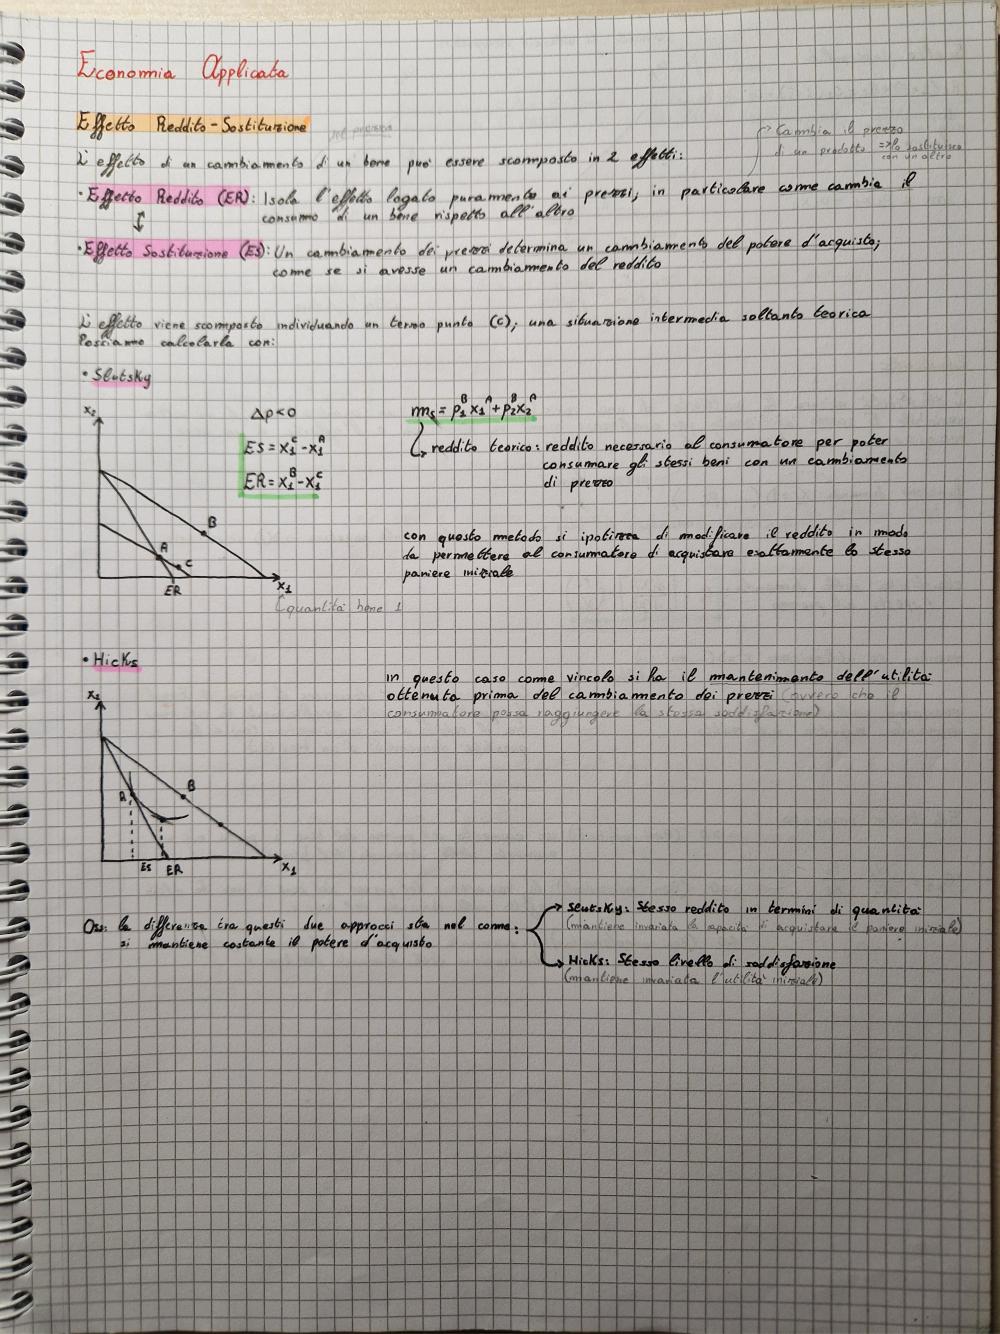 Economia Applicata
Effetto Reddito-Sostituzione
sul prezzo
L'effetto di un cambiamento di un bene può essere scomposto in 2 effetti:
Cambia il prezzo
di un prodotto => lo sostituisco
con un altro
• Effetto Reddito (ER): Isola l'effetto legato puramente ai prezzi, in particolare come cambia il
consumo di un bene rispetto all'altro
• Effetto Sostituzione (ES): Un cambiamento dei prezzi determina un cambiamento del potere d'acquisto,
come se si avesse un cambiamento del reddito
L'effetto viene scomposto individuando un terzo punto (C), una situazione intermedia soltanto teorica
Possiamo calcolarla con:
• Slutsky
x₂
Δp<0
ES = x₁ᶜ - x₁ᴬ
ER = x₁ᴮ - x₁ᶜ
mₛ = p₁ᴮ x₁ᴬ + p₂ᴮ x₂ᴬ
reddito teorico: reddito necessario al consumatore per poter
consumare gli stessi beni con un cambiamento
di prezzo
B
A
C
ER
x₁
(quantità bene 1
con questo metodo si ipotizza di modificare il reddito in modo
da permettere al consumatore di acquistare esattamente lo stesso
paniere iniziale
• Hicks
in questo caso come vincolo si ha il mantenimento dell'utilità
ottenuta prima del cambiamento dei prezzi (ovvero che il
consumatore possa raggiungere la stessa soddisfazione)
B
A
ES ER
x₁
Oss: la differenza tra questi due approcci sta nel come:
si mantiene costante il potere d'acquisto
Slutsky: Stesso reddito in termini di quantità
(mantiene invariata la capacità di acquistare il paniere iniziale)
Hicks: Stesso livello di soddisfazione
(mantiene invariata l'utilità iniziale)